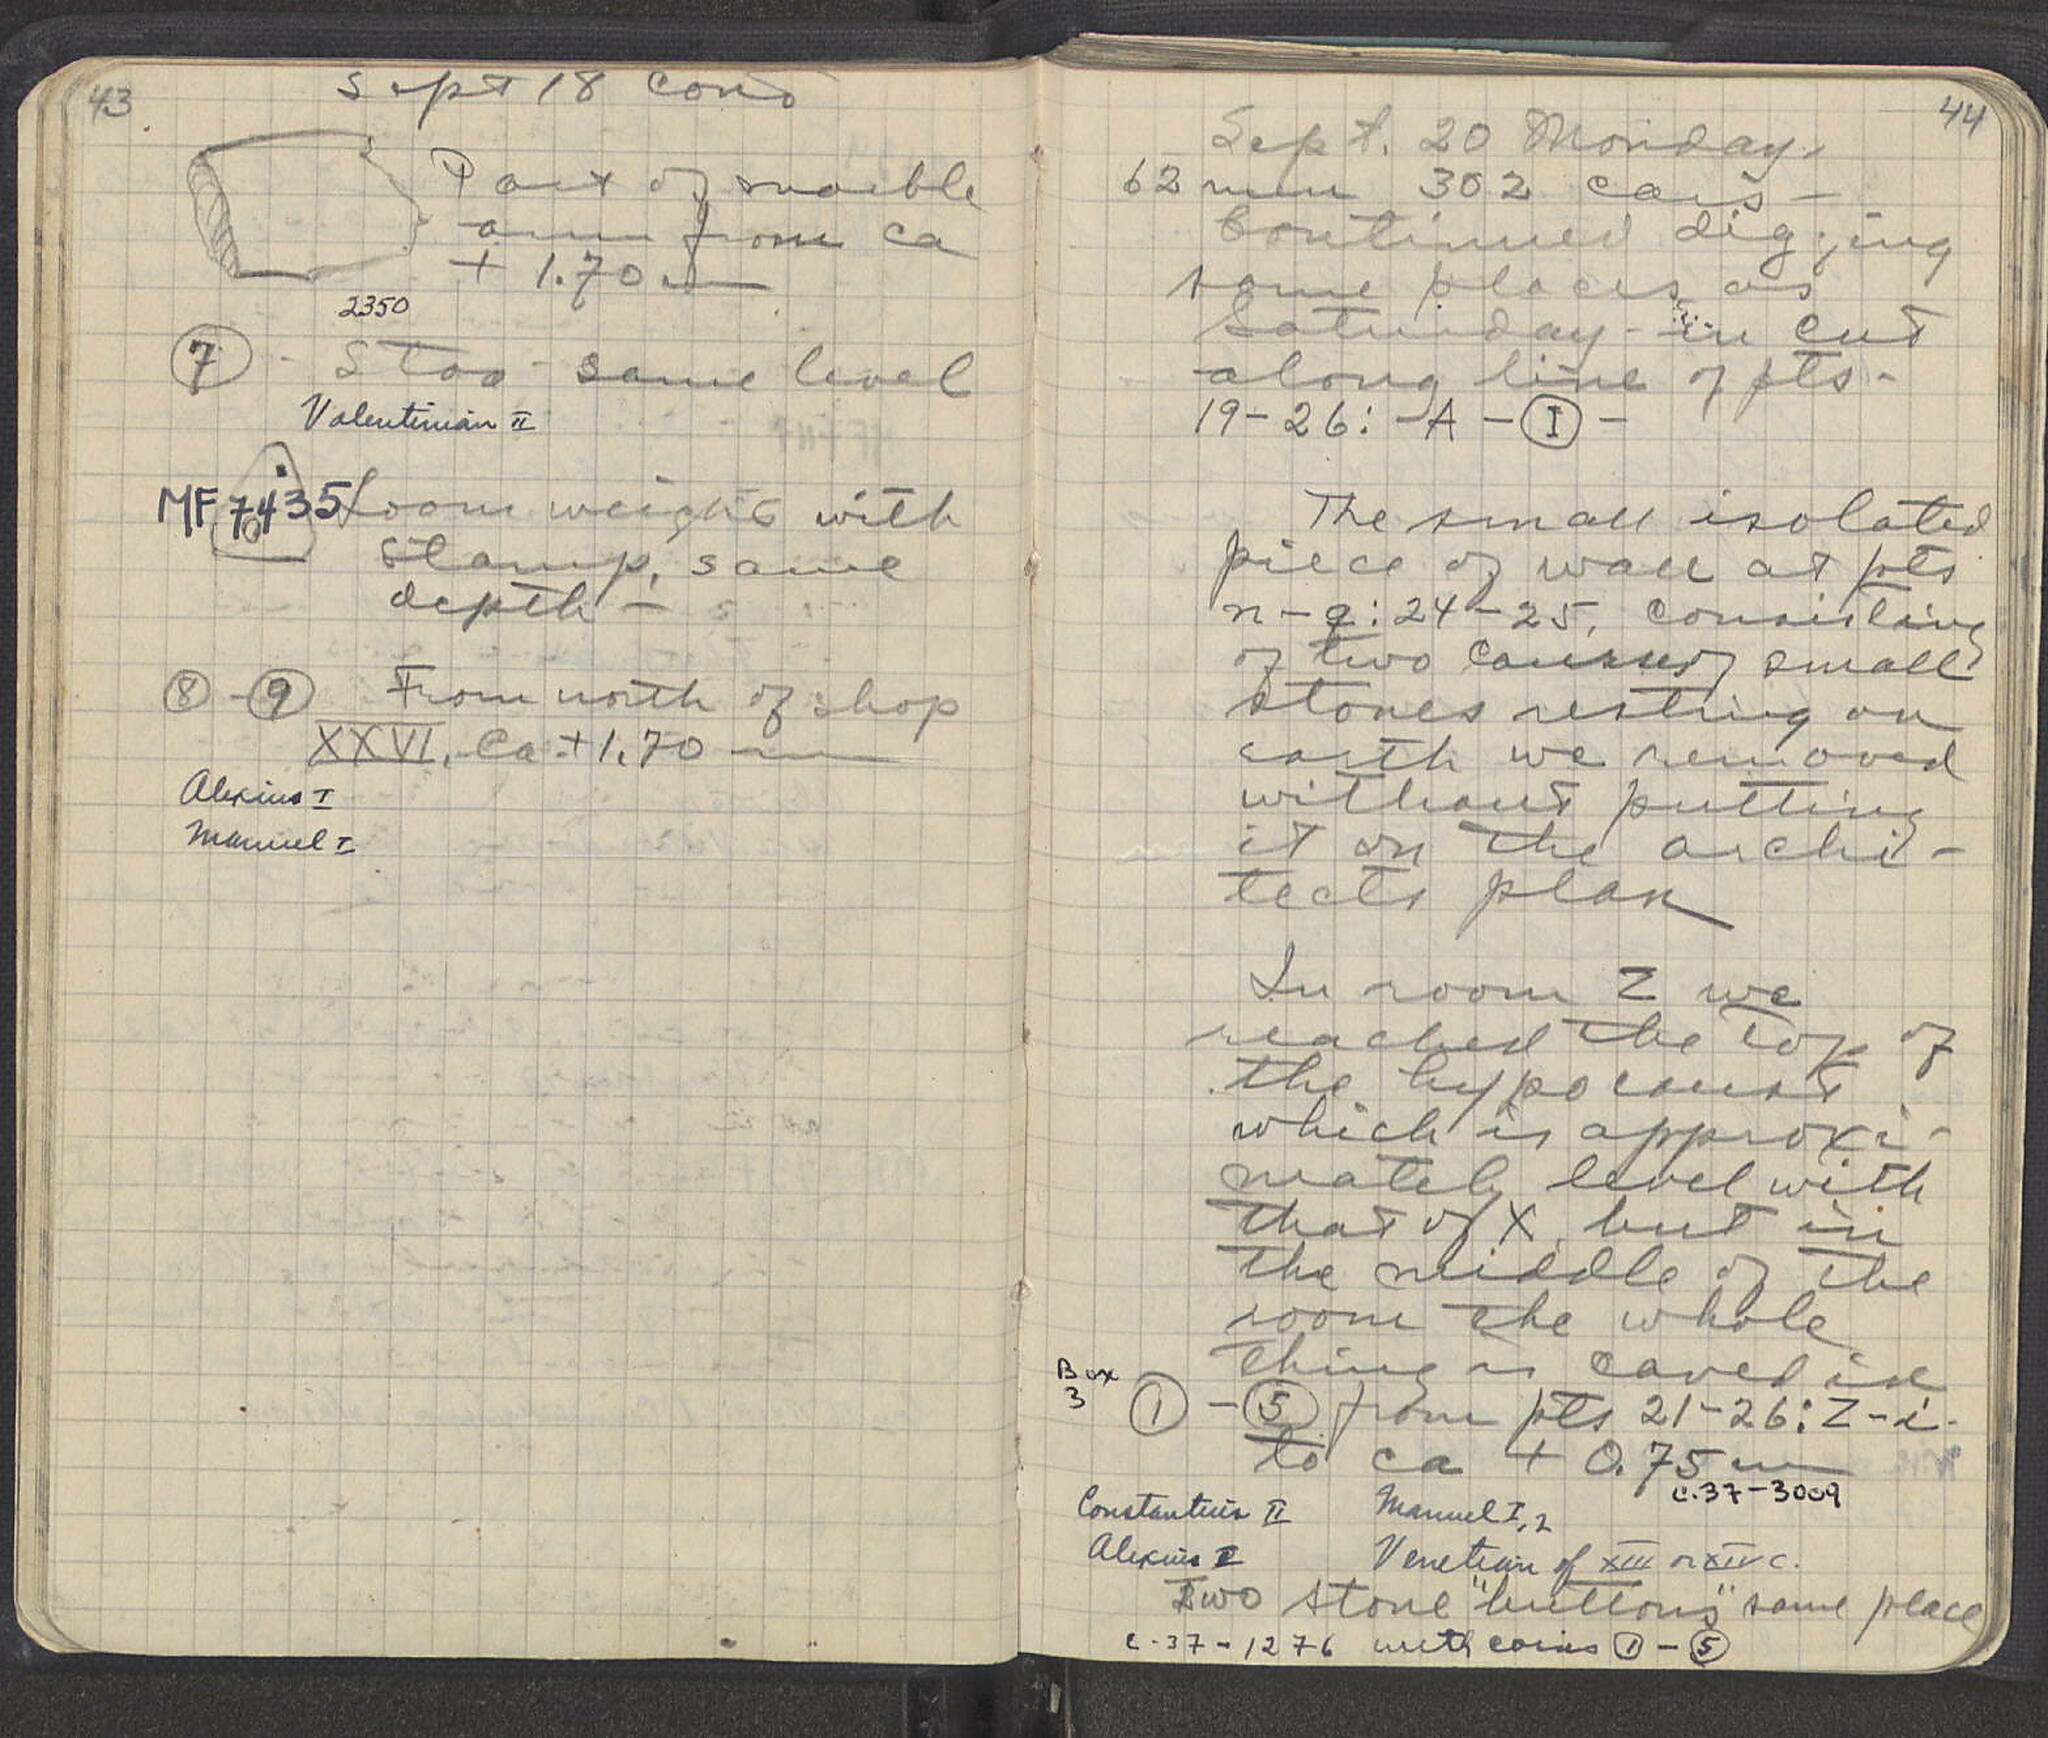 43
Sept 18 Cond
Part of marble
arm from ca
+ 1.70 m
2350
⑦ - Stoa - same level
Valentinian II
MF 7435 Loom weight with
stamp, same
depth -
⑧ - ⑨ From north of shop
XXVI, Ca + 1.70 m
Alexius I
Manuel I
44
Sept. 20 Monday.
62 men 302 cars -
Continued digging
same places as
Saturday - in cut
along line of pts -
19-26: -A - Ⓘ -
The small isolated
piece of wall at pts
n-q: 24-25, consisting
of two courses of small
stones resting on
earth we removed
without putting
it on the archi-
tects plan
In room Z we
reached the top of
the hypocaust
which is approxi-
mately level with
that of X, but in
the middle of the
room the whole
thing is caved in
Box
3
① - ⑤ from pts 21-26: Z-i-
to ca + 0.75 m
C.37-3009
Constantius II Manuel I, 2
Alexius I Venetian of XIII or XIV c.
Two stone "buttons" same place
C-37-1276 with coins ① - ⑤